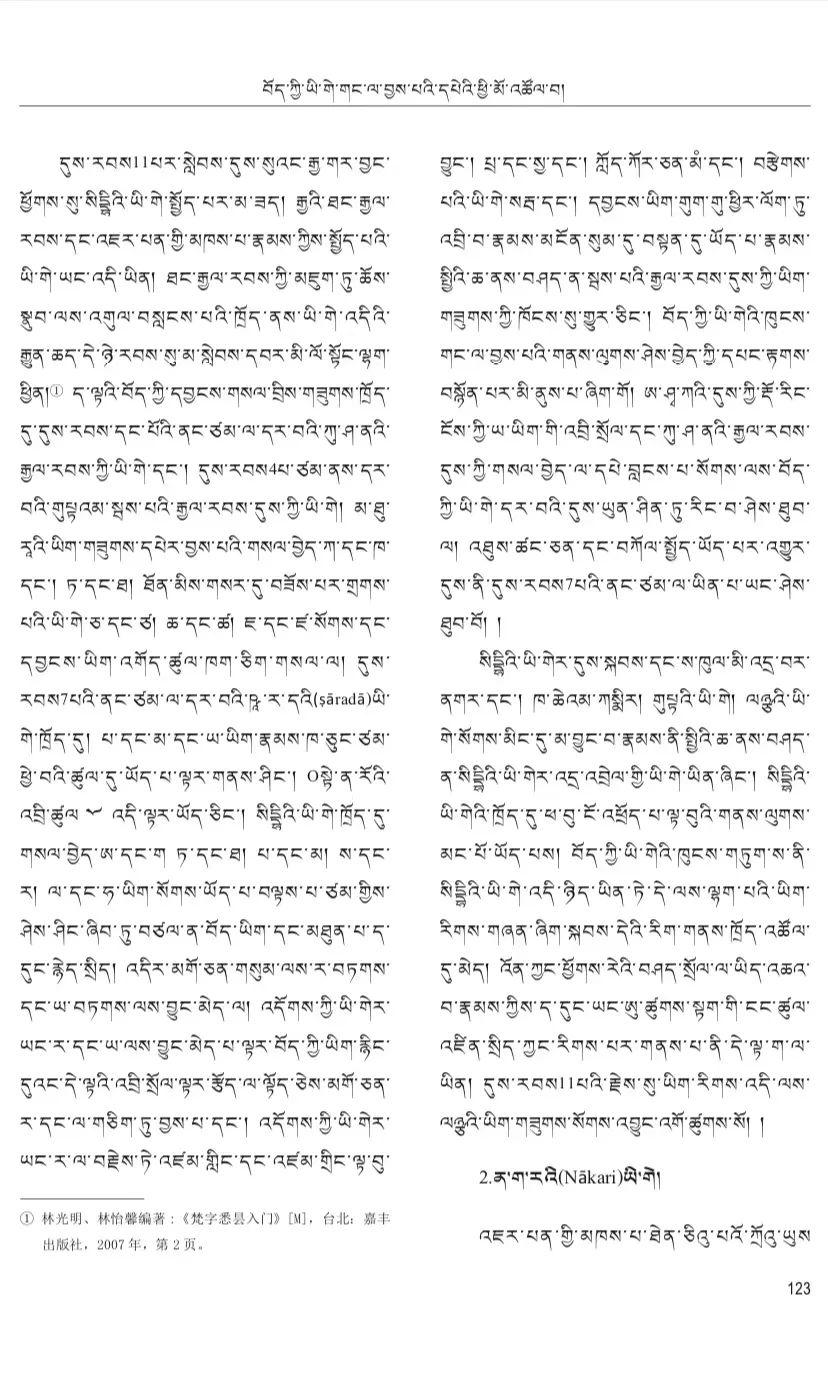 བོད་ཀྱི་ཡི་གེ་གང་ལ་བྱས་པའི་དཔེའི་ཕྱི་མོ་འཚོལ་བ།
དུས་རབས11པར་སླེབས་དུས་སུའང་རྒྱ་གར་བྱང་
ཕྱོགས་སུ་སིདྡྷིའི་ཡི་གེ་སྤྱོད་པར་མ་ཟད། རྒྱའི་ཐང་རྒྱལ་
རབས་དང་འཇར་པན་གྱི་མཁས་པ་རྣམས་ཀྱིས་སྤྱོད་པའི་
ཡི་གེ་ཡང་འདི་ཡིན། ཐང་རྒྱལ་རབས་ཀྱི་མཇུག་ཏུ་ཆོས་
སྣུབ་ལས་འགུལ་བསླངས་པའི་ཁྲོད་ནས་ཡི་གེ་འདིའི་
རྒྱུན་ཆད་དེ་ཉེ་རབས་སུ་མ་སླེབས་དབར་མི་ལོ་སྟོང་ལྷག་
ཕྱིན།① ད་ལྟའི་བོད་ཀྱི་དབྱངས་གསལ་བྲིས་གཟུགས་ཁྲོད་
དུ་དུས་རབས་དང་པོའི་ནང་ཙམ་ལ་དར་བའི་ཀུ་ཤ་ནའི་
རྒྱལ་རབས་ཀྱི་ཡི་གེ་དང་། དུས་རབས4པ་ཙམ་ནས་དར་
བའི་གུཔྟའམ་སྦས་པའི་རྒྱལ་རབས་དུས་ཀྱི་ཡི་གེ། མ་ཐུ་
རཱའི་ཡིག་གཟུགས་དཔེར་བྱས་པའི་གསལ་བྱེད་ཀ་དང་ཁ་
དང་། ཏ་དང་ཐ། ཐོན་མིས་གསར་དུ་བཟོས་པར་གྲགས་
པའི་ཡི་གེ་ཅ་དང་ཙ། ཆ་དང་ཚ། ཇ་དང་ཛ་སོགས་དང་
དབྱངས་ཡིག་འགོད་ཚུལ་ཁག་ཅིག་གསལ་ལ། དུས་
རབས7པའི་ནང་ཙམ་ལ་དར་བའི་ཥཱ་ར་དའི(ṣāradā)ཡི་
གེ་ཁྲོད་དུ། པ་དང་མ་དང་ཡ་ཡིག་རྣམས་ཁ་ཅུང་ཙམ་
ཕྱེ་བའི་ཚུལ་དུ་ཡོད་པ་ལྟར་གནས་ཤིང་། Oསྟེ་ན་རོའི་
འབྲི་ཚུལ འདི་ལྟར་ཡོད་ཅིང་། སིདྡྷིའི་ཡི་གེ་ཁྲོད་དུ་
གསལ་བྱེད་ཨ་དང་ག ཏ་དང་ཐ། པ་དང་མ། ས་དང་
ར། ལ་དང་ཧ་ཡིག་སོགས་ཡོད་པ་བལྟས་པ་ཙམ་གྱིས་
ཤེས་ཤིང་ཞིབ་ཏུ་བཙལ་ན་བོད་ཡིག་དང་མཐུན་པ་ད་
དུང་རྙེད་སྲིད། འདིར་མགོ་ཅན་གསུམ་ལས་ར་བཏགས་
དང་ཡ་བཏགས་ལས་བྱུང་མེད་ལ། འདོགས་ཀྱི་ཡི་གེར་
ཡང་ར་དང་ཡ་ལས་བྱུང་མེད་པ་ལྟར་བོད་ཀྱི་ཡིག་རྙིང་
དུའང་དེ་ལྟའི་འབྲི་སྲོལ་ལྟར་རྩོད་ལ་ལྟོད་ཅེས་མགོ་ཅན་
ར་དང་ལ་གཅིག་ཏུ་བྱས་པ་དང་། འདོགས་ཀྱི་ཡི་གེར་
ཡང་ར་ལ་བརྗེས་ཏེ་འཛམ་གླིང་དང་འཛམ་གྲིང་ལྟ་བུ་
① 林光明、林怡馨编著：《梵字悉昙入门》[M]，台北：嘉丰
出版社，2007 年，第 2 页。
བྱུང་། པྲ་དང་སྱ་དང་། ཀློད་ཀོར་ཅན་མཾ་དང་། བརྩེགས་
པའི་ཡི་གེ་སརྦ་དང་། དབྱངས་ཡིག་གུག་གུ་ཕྱིར་ལོག་ཏུ་
འབྲི་བ་རྣམས་མངོན་སུམ་དུ་བསྟན་དུ་ཡོད་པ་རྣམས་
སྤྱིའི་ཆ་ནས་བཤད་ན་སྦས་པའི་རྒྱལ་རབས་དུས་ཀྱི་ཡིག་
གཟུགས་ཀྱི་ཁོངས་སུ་གྱུར་ཅིང་། བོད་ཀྱི་ཡི་གེའི་ཁུངས་
གང་ལ་བྱས་པའི་གནས་ལུགས་ཤེས་བྱེད་ཀྱི་དཔང་རྟགས་
བསྙོན་པར་མི་ནུས་པ་ཞིག་གོ། ཨ་ཤྭ་ཀའི་དུས་ཀྱི་རྡོ་རིང་
ངོས་ཀྱི་ཡ་ཡིག་གི་འབྲི་སྲོལ་དང་ཀུ་ཤ་ནའི་རྒྱལ་རབས་
དུས་ཀྱི་གསལ་བྱེད་ལ་དཔེ་བླངས་པ་སོགས་ལས་བོད་
ཀྱི་ཡི་གེ་དར་བའི་དུས་ཡུན་ཤིན་ཏུ་རིང་བ་ཤེས་ཐུབ་
ལ། འཐུས་ཚང་ཅན་དང་བཀོལ་སྤྱོད་ཡོད་པར་འགྱུར་
དུས་ནི་དུས་རབས7པའི་ནང་ཙམ་ལ་ཡིན་པ་ཡང་ཤེས་
ཐུབ་བོ། །
སིདྡྷིའི་ཡི་གེར་དུས་སྐབས་དང་ས་ཁུལ་མི་འདྲ་བར་
ནགར་དང་། ཁ་ཆེའམ་ཀསྨིར། གུཔྟའི་ཡི་གེ། ལཉྩའི་ཡི་
གེ་སོགས་མིང་དུ་མ་བྱུང་བ་རྣམས་ནི་སྤྱིའི་ཆ་ནས་བཤད་
ན་སིདྡྷིའི་ཡི་གེར་འདྲ་འབྲེལ་གྱི་ཡི་གེ་ཡིན་ཞིང་། སིདྡྷིའི་
ཡི་གེའི་ཁྲོད་དུ་ཕ་བུ་ངོ་འཕྲོད་པ་ལྟ་བུའི་གནས་ལུགས་
མང་པོ་ཡོད་པས། བོད་ཀྱི་ཡི་གེའི་ཁུངས་གཏུག་ས་ནི་
སིདྡྷིའི་ཡི་གེ་འདི་ཉིད་ཡིན་ཏེ་དེ་ལས་ལྷག་པའི་ཡིག་
རིགས་གཞན་ཞིག་སྐབས་དེའི་རིག་གནས་ཁྲོད་འཚོལ་
དུ་མེད། འོན་ཀྱང་ཕྱོགས་རེའི་བཤད་སྲོལ་ལ་ཡིད་འཆའ་
བ་རྣམས་ཀྱིས་ད་དུང་ཡང་ཨུ་ཚུགས་སྟག་གི་ངང་ཚུལ་
འཛིན་སྲིད་ཀྱང་རིགས་པར་གནས་པ་ནི་དེ་ལྟ་ག་ལ་
ཡིན། དུས་རབས11པའི་རྗེས་སུ་ཡིག་རིགས་འདི་ལས་
ལཉྩའི་ཡིག་གཟུགས་སོགས་འབྱུང་འགོ་ཚུགས་སོ། །
2.ན་ག་རའི(Nākari)ཡི་གེ།
འཇར་པན་གྱི་མཁས་པ་ཐེན་ཅིའུ་པའོ་ཀྲོའུ་ཡུས
123